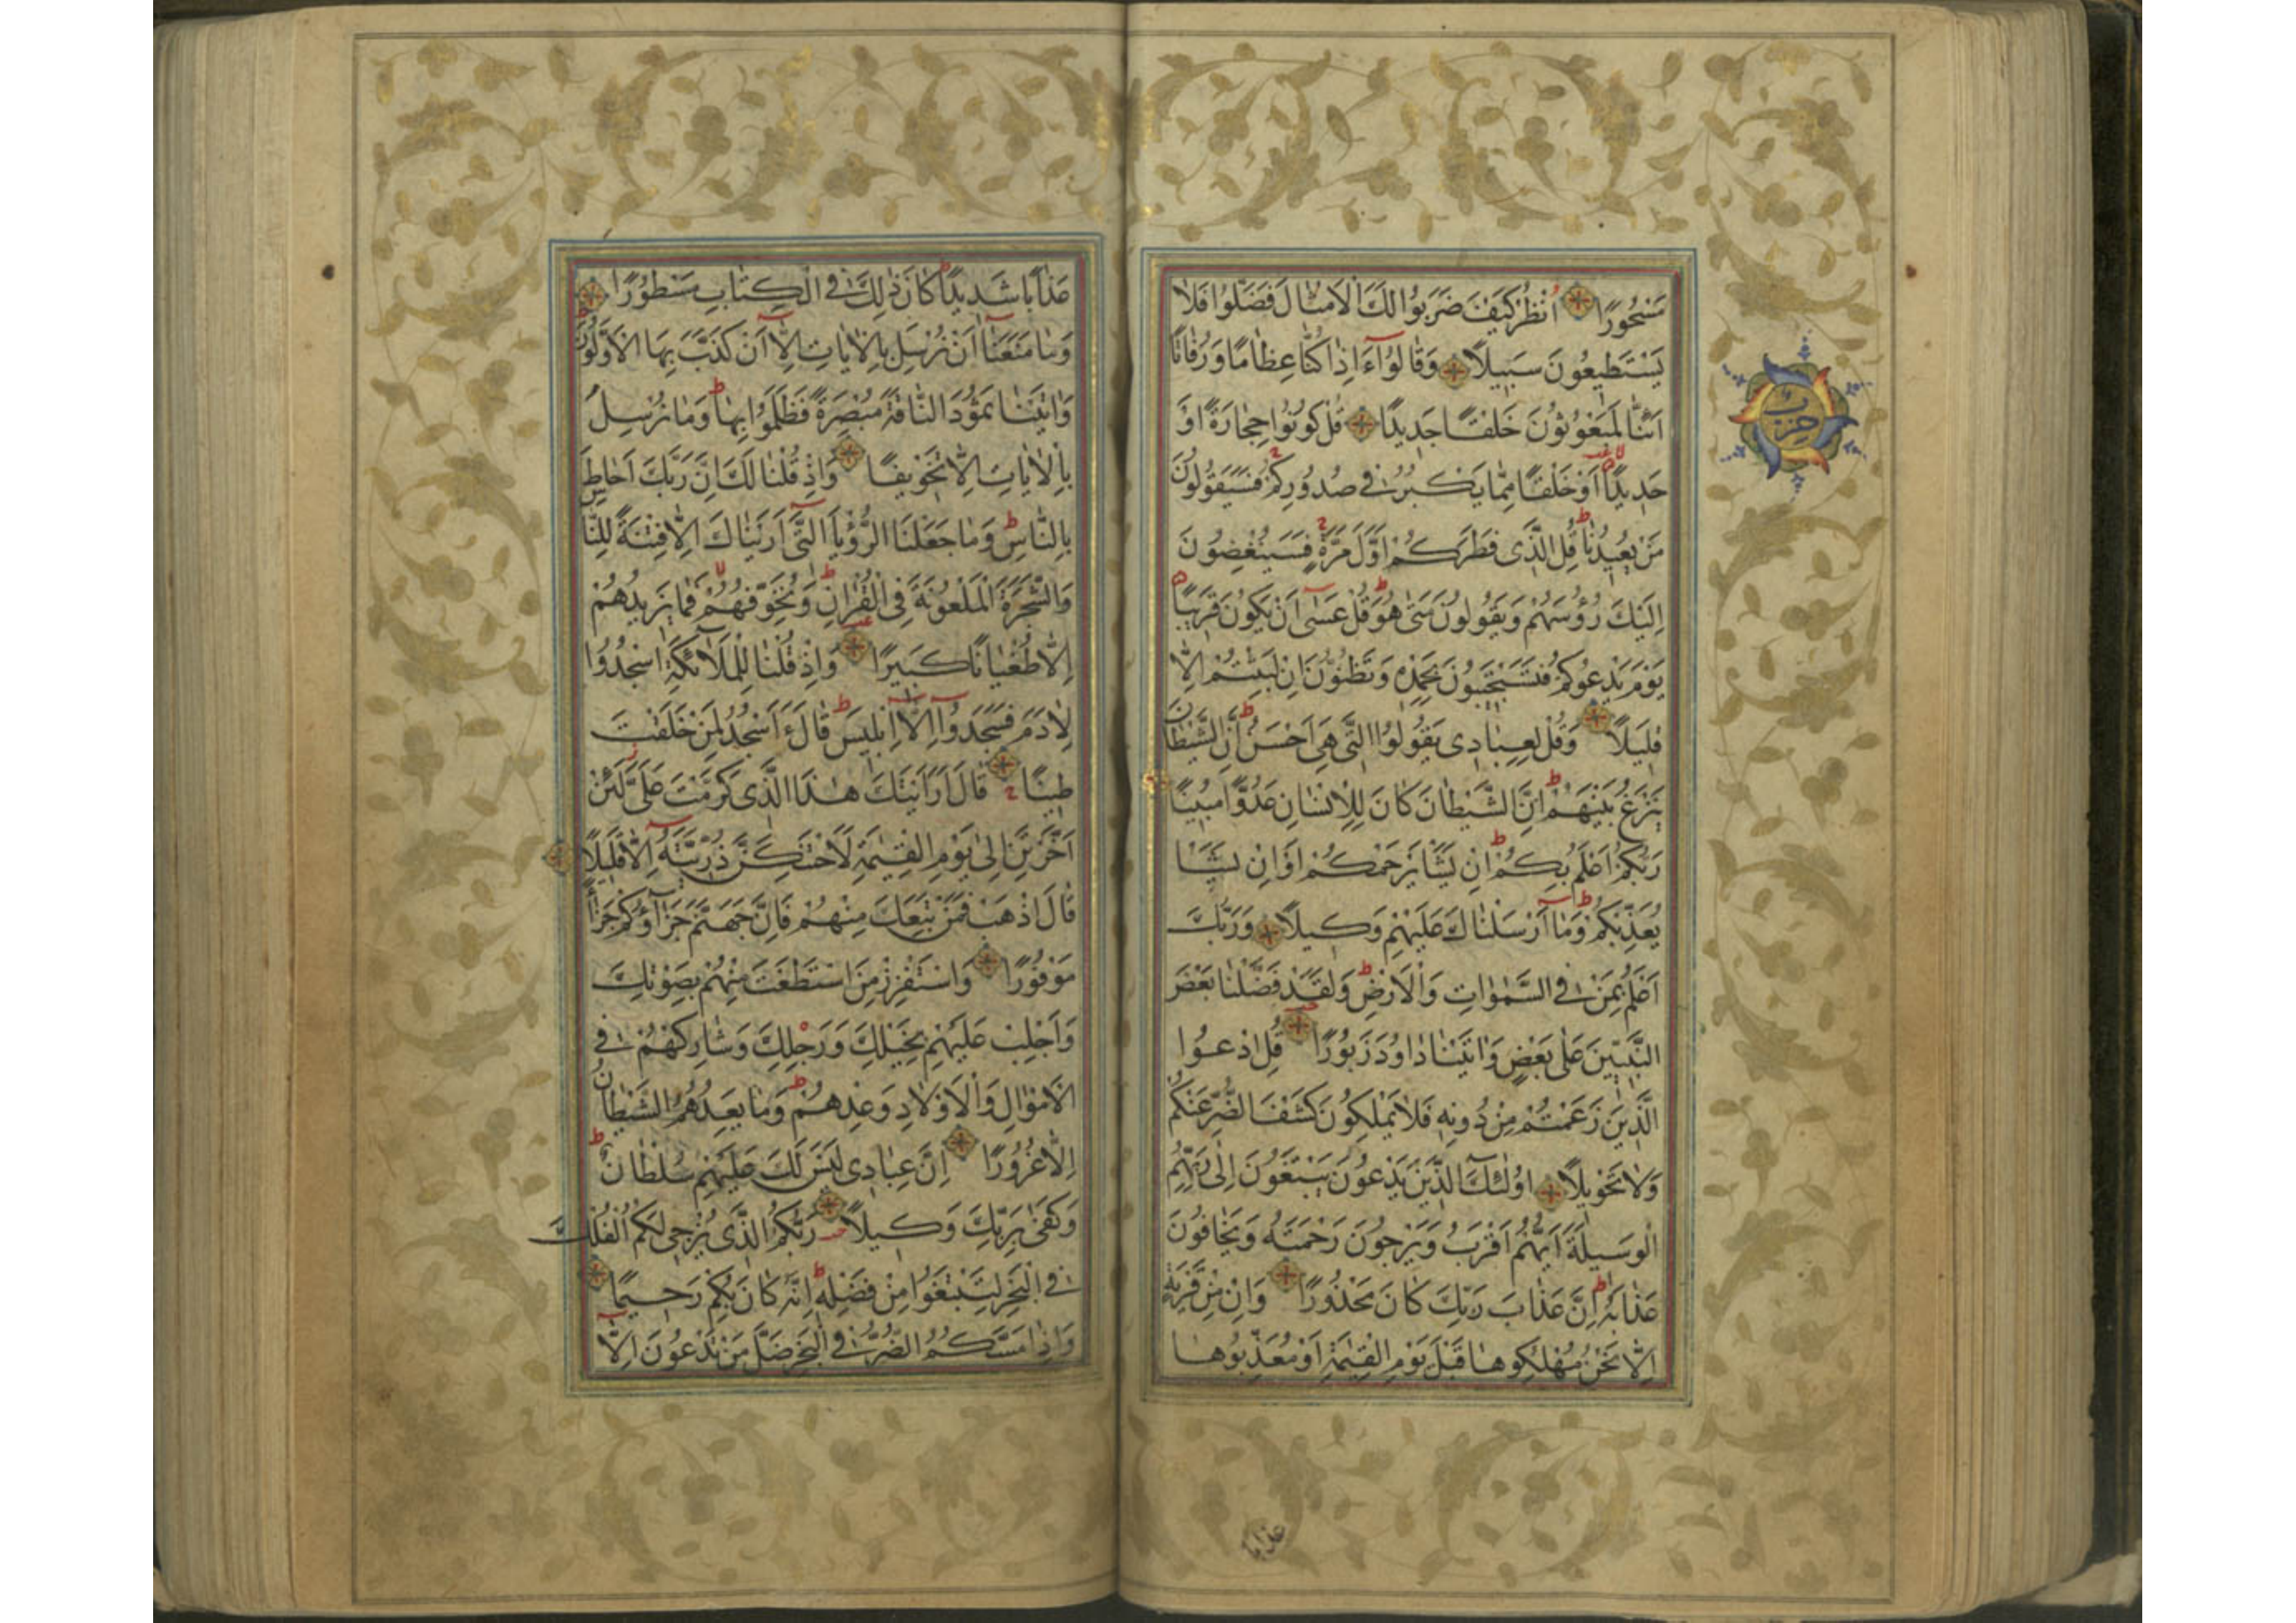 مَسْحُورًا اُنْظُرْ كَيْفَ ضَرَبُوا لَكَ الْاَمْثَالَ فَضَلُّوا فَلَا
يَسْتَطِيعُونَ سَبِيلًا وَقَالُوٓا ءَاِذَا كُنَّا عِظَامًا وَرُفَاتًا
اَئِنَّا لَمَبْعُوثُونَ خَلْقًا جَدِيدًا قُلْ كُونُوا حِجَارَةً اَوْ
حَدِيدًا اَوْ خَلْقًا مِمَّا يَكْبُرُ فِي صُدُورِكُمْ فَسَيَقُولُونَ
مَنْ يُعِيدُنَا قُلِ الَّذِي فَطَرَكُمْ اَوَّلَ مَرَّةٍ فَسَيُنْغِضُونَ
اِلَيْكَ رُؤُسَهُمْ وَيَقُولُونَ مَتٰى هُوَ قُلْ عَسٰٓى اَنْ يَكُونَ قَرِيبًا
يَوْمَ يَدْعُوكُمْ فَتَسْتَجِيبُونَ بِحَمْدِهِ وَتَظُنُّونَ اِنْ لَبِثْتُمْ اِلَّا
قَلِيلًا وَقُلْ لِعِبَادِي يَقُولُوا الَّتِي هِيَ اَحْسَنُ اِنَّ الشَّيْطَانَ
يَنْزَغُ بَيْنَهُمْ اِنَّ الشَّيْطَانَ كَانَ لِلْاِنْسَانِ عَدُوًّا مُبِينًا
رَبُّكُمْ اَعْلَمُ بِكُمْ اِنْ يَشَاْ يَرْحَمْكُمْ اَوْ اِنْ يَشَاْ
يُعَذِّبْكُمْ وَمَٓا اَرْسَلْنَاكَ عَلَيْهِمْ وَكِيلًا وَرَبُّكَ
اَعْلَمُ بِمَنْ فِي السَّمٰوَاتِ وَالْاَرْضِ وَلَقَدْ فَضَّلْنَا بَعْضَ
النَّبِيِّينَ عَلٰى بَعْضٍ وَاٰتَيْنَا دَاوُدَ زَبُورًا قُلِ ادْعُوا
الَّذِينَ زَعَمْتُمْ مِنْ دُونِهِ فَلَا يَمْلِكُونَ كَشْفَ الضُّرِّ عَنْكُمْ
وَلَا تَحْوِيلًا اُولٰٓئِكَ الَّذِينَ يَدْعُونَ يَبْتَغُونَ اِلٰى رَبِّهِمُ
الْوَسِيلَةَ اَيُّهُمْ اَقْرَبُ وَيَرْجُونَ رَحْمَتَهُ وَيَخَافُونَ
عَذَابَهُ اِنَّ عَذَابَ رَبِّكَ كَانَ مَحْذُورًا وَاِنْ مِنْ قَرْيَةٍ
اِلَّا نَحْنُ مُهْلِكُوهَا قَبْلَ يَوْمِ الْقِيٰمَةِ اَوْ مُعَذِّبُوهَا
عذابا
حزب
عَذَابًا شَدِيدًا كَانَ ذٰلِكَ فِي الْكِتَابِ مَسْطُورًا
وَمَا مَنَعَنَٓا اَنْ نُرْسِلَ بِالْاٰيَاتِ اِلَّٓا اَنْ كَذَّبَ بِهَا الْاَوَّلُونَ
وَاٰتَيْنَا ثَمُودَ النَّاقَةَ مُبْصِرَةً فَظَلَمُوا بِهَا وَمَا نُرْسِلُ
بِالْاٰيَاتِ اِلَّا تَخْوِيفًا وَاِذْ قُلْنَا لَكَ اِنَّ رَبَّكَ اَحَاطَ
بِالنَّاسِ وَمَا جَعَلْنَا الرُّؤْيَا الَّتِٓي اَرَيْنَاكَ اِلَّا فِتْنَةً لِلنَّاسِ
وَالشَّجَرَةَ الْمَلْعُونَةَ فِي الْقُرْاٰنِ وَنُخَوِّفُهُمْ فَمَا يَزِيدُهُمْ
اِلَّا طُغْيَانًا كَبِيرًا وَاِذْ قُلْنَا لِلْمَلٰٓئِكَةِ اسْجُدُوا
لِاٰدَمَ فَسَجَدُٓوا اِلَّٓا اِبْلِيسَ قَالَ ءَاَسْجُدُ لِمَنْ خَلَقْتَ
طِينًا قَالَ اَرَاَيْتَكَ هٰذَا الَّذِي كَرَّمْتَ عَلَيَّ لَئِنْ
اَخَّرْتَنِ اِلٰى يَوْمِ الْقِيٰمَةِ لَاَحْتَنِكَنَّ ذُرِّيَّتَهُٓ اِلَّا قَلِيلًا
قَالَ اذْهَبْ فَمَنْ تَبِعَكَ مِنْهُمْ فَاِنَّ جَهَنَّمَ جَزَٓاؤُكُمْ جَزَٓاءً
مَوْفُورًا وَاسْتَفْزِزْ مَنِ اسْتَطَعْتَ مِنْهُمْ بِصَوْتِكَ
وَاَجْلِبْ عَلَيْهِمْ بِخَيْلِكَ وَرَجِلِكَ وَشَارِكْهُمْ فِي
الْاَمْوَالِ وَالْاَوْلَادِ وَعِدْهُمْ وَمَا يَعِدُهُمُ الشَّيْطَانُ
اِلَّا غُرُورًا اِنَّ عِبَادِي لَيْسَ لَكَ عَلَيْهِمْ سُلْطَانٌ
وَكَفٰى بِرَبِّكَ وَكِيلًا رَبُّكُمُ الَّذِي يُزْجِي لَكُمُ الْفُلْكَ
فِي الْبَحْرِ لِتَبْتَغُوا مِنْ فَضْلِهِ اِنَّهُ كَانَ بِكُمْ رَحِيمًا
وَاِذَا مَسَّكُمُ الضُّرُّ فِي الْبَحْرِ ضَلَّ مَنْ تَدْعُونَ اِلَّٓا